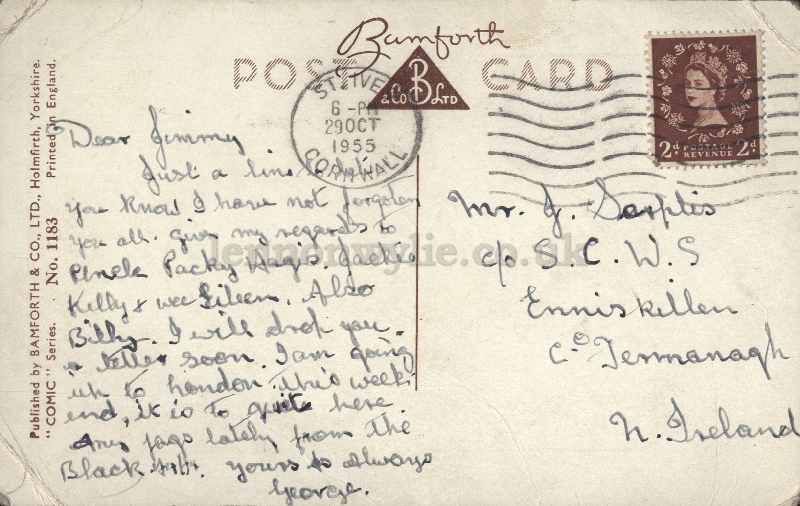 Published by BAMFORTH & CO., LTD., Holmfirth, Yorkshire.
"COMIC" Series. No. 1183 Printed in England.
Bamforth
POST CARD
B
& Co LTD
ST. IVES
6 - PM
29 OCT
1955
CORNWALL
2d POSTAGE REVENUE 2d
Dear Jimmy
Just a line to let
you know I have not forgoten
you all. give my regards to
Uncle Packy Jackie
Kelly & wee Eileen. Also
Billy. I will drop you
a letter soon. I am going
up to London this week
end, it is to quite here
any fags lately from the
Black yours as always
George.
Mr. J.
c/o S. C. W. S
Enniskillen
Co Fermanagh
N. Ireland
lennonwylie.co.uk